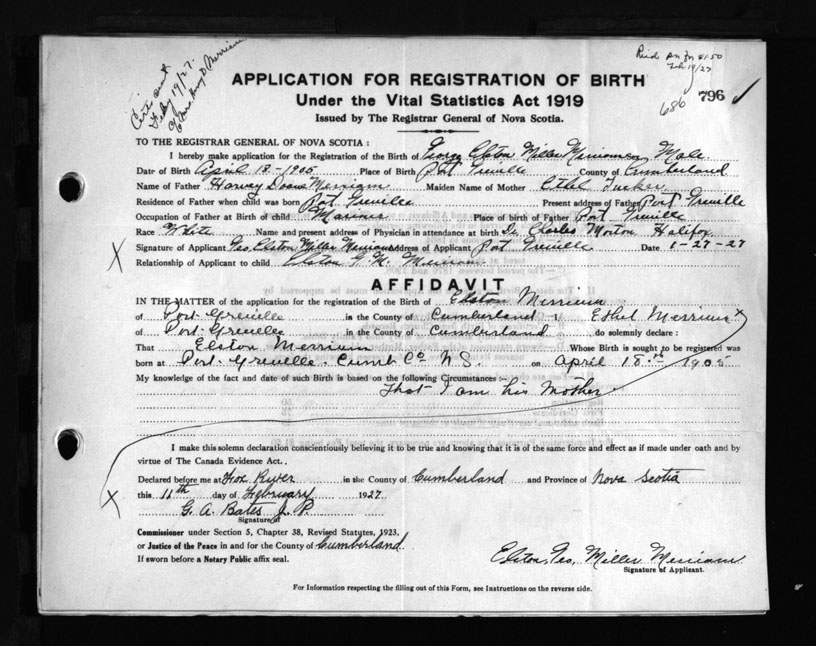 Cert sent
Feby 19/27.
Merriam
Feb 19/27
686
796
APPLICATION FOR REGISTRATION OF BIRTH
Under the Vital Statistics Act 1919
Issued by The Registrar General of Nova Scotia.
TO THE REGISTRAR GENERAL OF NOVA SCOTIA :
I hereby make application for the Registration of the Birth of George Elston Miller Merriam Male
Date of Birth April 18 - 1905 Place of Birth Port Greville County of Cumberland
Name of Father Harvey Doane Merriam Maiden Name of Mother Ethel Tucker
Residence of Father when child was born Port Greville Present address of Father Port Greville
Occupation of Father at Birth of child Mariner Place of birth of Father Port Greville
Race White Name and present address of Physician in attendance at birth Dr Charles Morton Halifax
X Signature of Applicant Geo. Elston Miller Merriam Address of Applicant Port Greville Date 1-27-27
Relationship of Applicant to child Elston G. M. Merriam
AFFIDAVIT
IN THE MATTER of the application for the registration of the Birth of Elston Merriam
of Port Greville in the County of Cumberland I, Ethel Merriam x
of Port Greville in the County of Cumberland do solemnly declare :
That Elston Merriam Whose Birth is sought to be registered was
born at Port Greville. Cumb. Co N S. on April 18th 1905
My knowledge of the fact and date of such Birth is based on the following Circumstances :-
That I am his Mother
I make this solemn declaration conscientiously believing it to be true and knowing that it is of the same force and effect as if made under oath and by
virtue of The Canada Evidence Act.
Declared before me at Fox River in the County of Cumberland and Province of Nova Scotia
X this 11th day of February 1927.
G. A. Bates J. P.
Signature of
Commissioner under Section 5, Chapter 38, Revised Statutes, 1923.
or Justice of the Peace in and for the County of Cumberland
If sworn before a Notary Public affix seal.
Elston, Geo, Miller Merriam
Signature of Applicant.
For Information respecting the filling out of this Form, see Instructions on the reverse side.